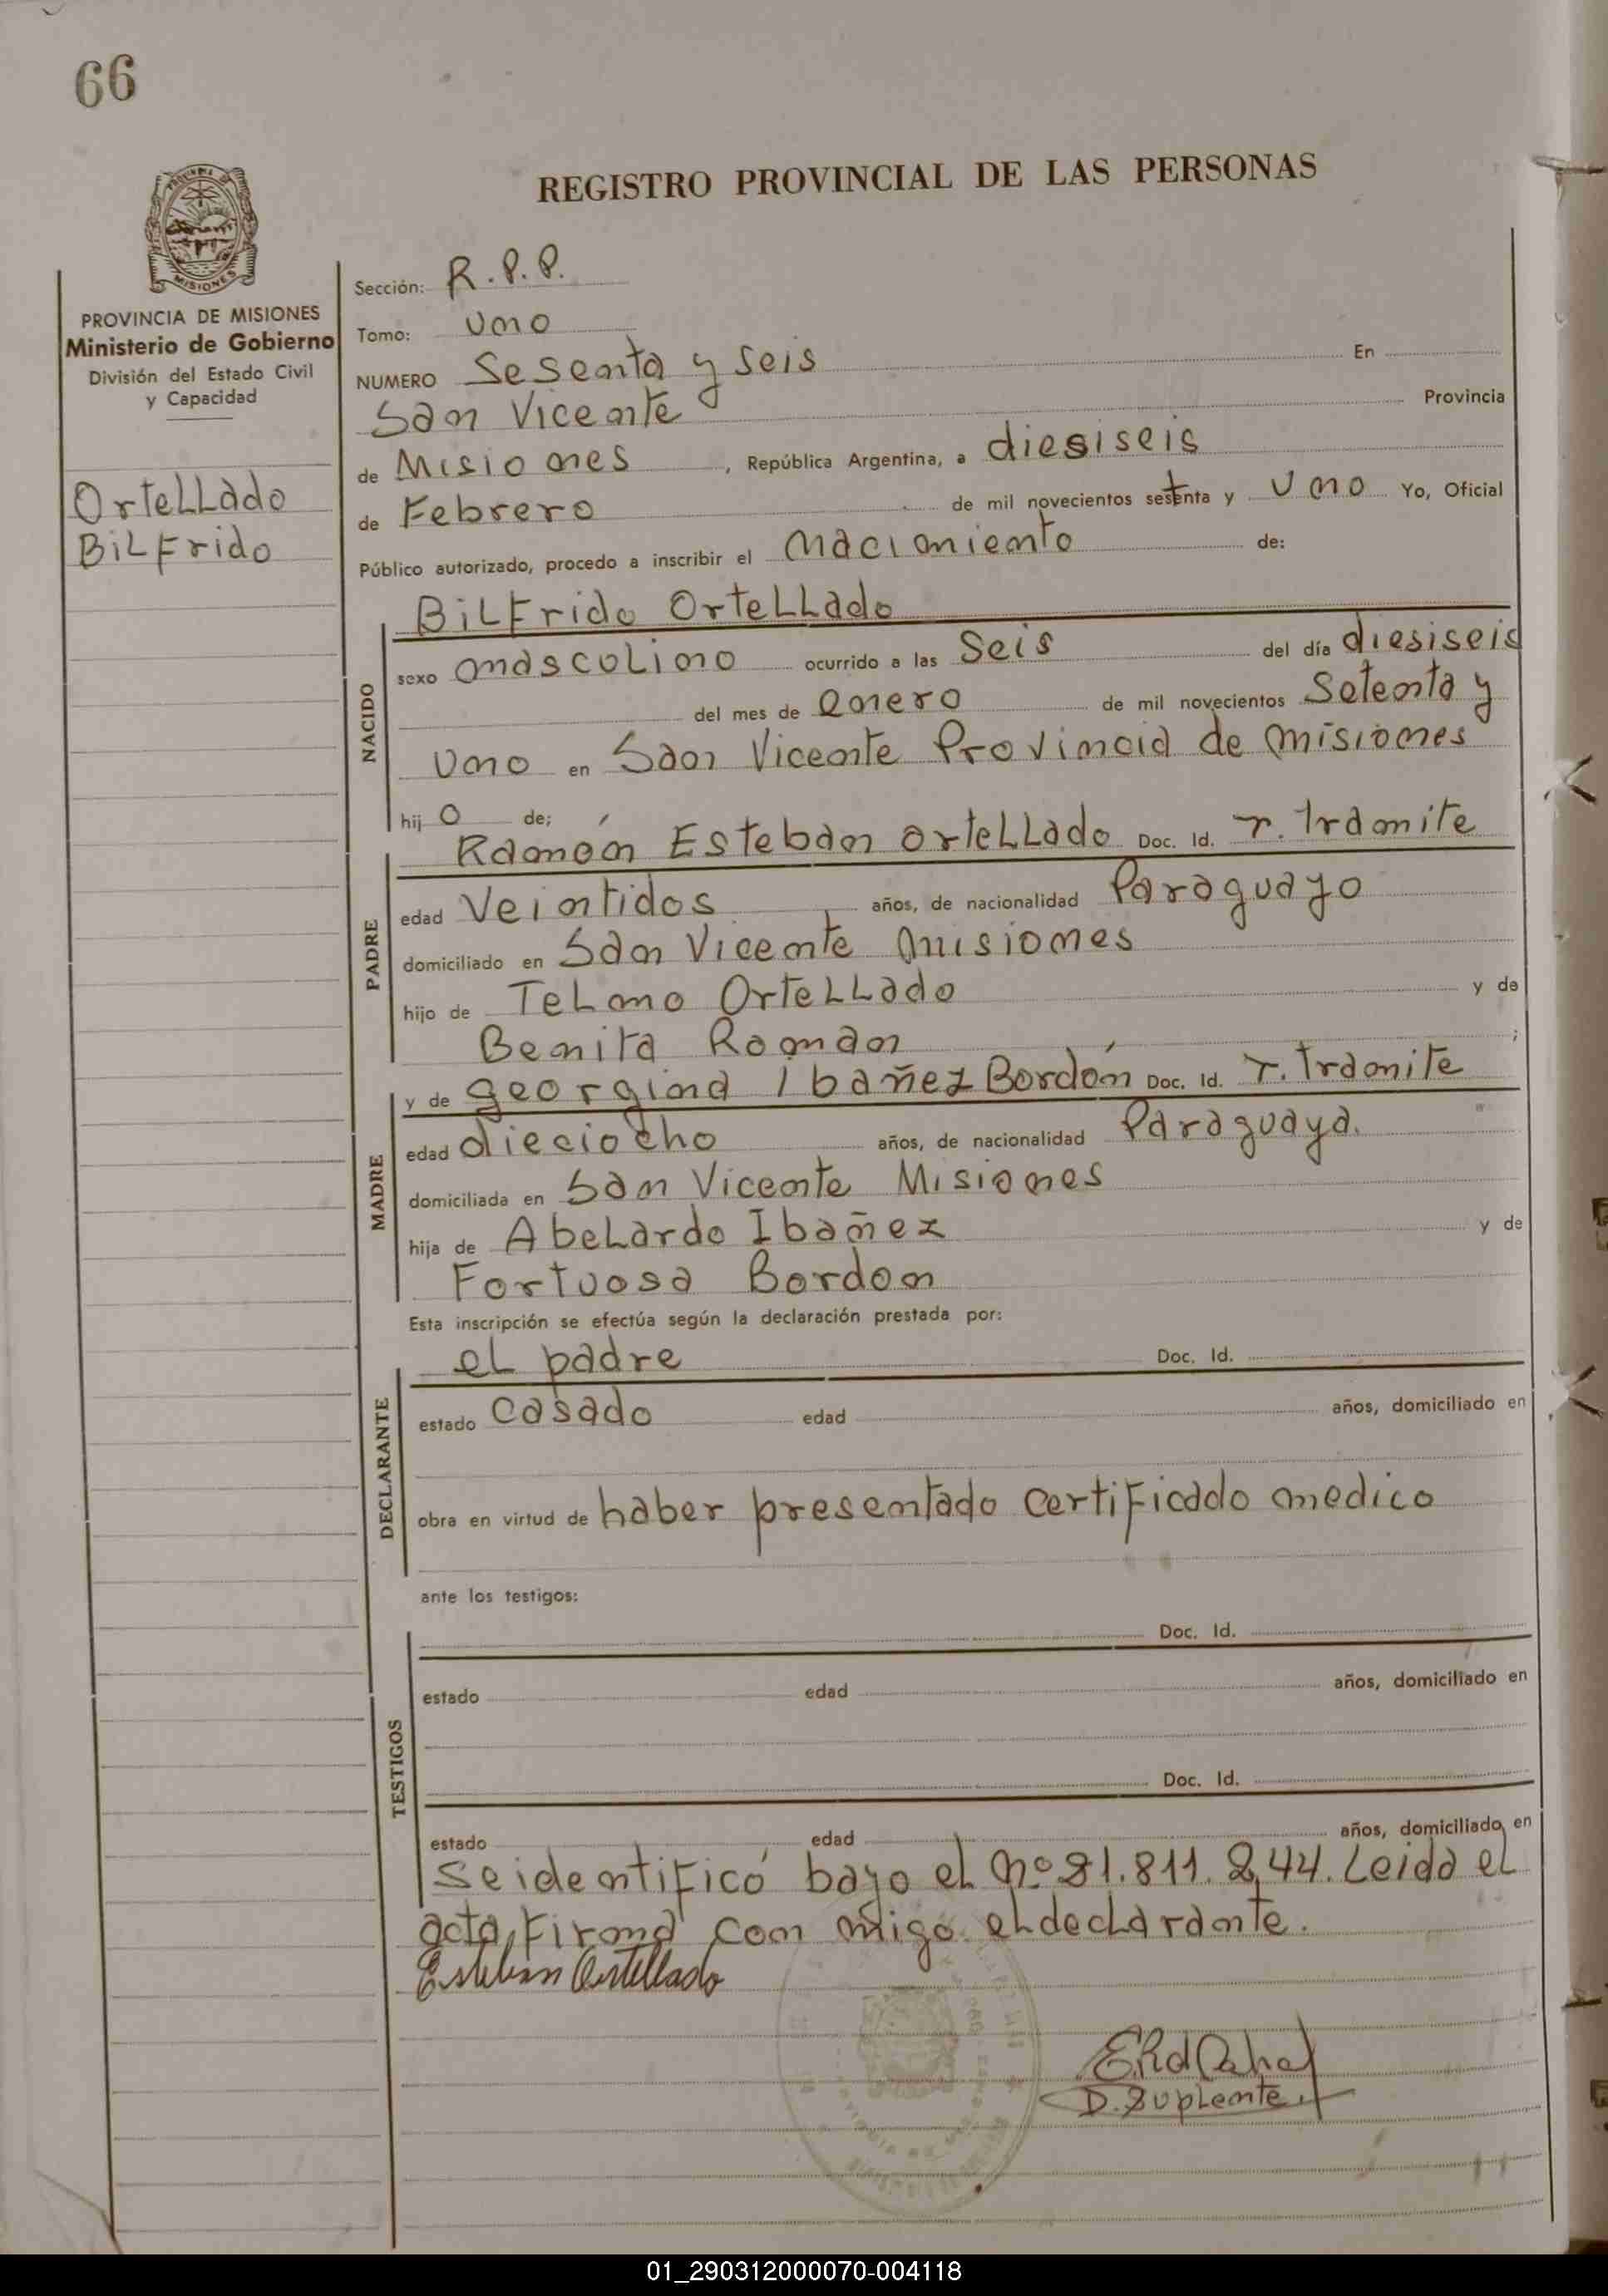 66
REGISTRO PROVINCIAL DE LAS PERSONAS
MISIONES
PROVINCIA DE MISIONES
Ministerio de Gobierno
División del Estado Civil
y Capacidad
Ortellado
Bilfrido
Sección: R.P.P.
Tomo: Uno
NUMERO Sesenta y seis En
San Vicente Provincia
de Misiones, República Argentina, a diesiseis
de Febrero de mil novecientos setenta y Uno Yo, Oficial
Público autorizado, procedo a inscribir el nacimiento de:
Bilfrido Ortellado
NACIDO
sexo mascolino ocurrido a las Seis del día diesiseis
del mes de enero de mil novecientos Setenta y
Uno en San Vicente Provincia de misiones
hijo de:
Ramón Esteban Ortellado Doc. Id. r. tramite
PADRE
edad Veintidos años, de nacionalidad Paraguayo
domiciliado en San Vicente misiones
hijo de Telmo Ortellado y de
Benita Roman;
y de georgina Ibañez Bordón Doc. Id. r. tramite
MADRE
edad dieciocho años, de nacionalidad Paraguaya.
domiciliada en San Vicente Misiones
hija de Abelardo Ibañez y de
Fortuosa Bordon
Esta inscripción se efectúa según la declaración prestada por:
el padre Doc. Id.
DECLARANTE
estado Casado edad años, domiciliado en
obra en virtud de haber presentado certificado medico
ante los testigos:
Doc. Id.
TESTIGOS
estado edad años, domiciliado en
Doc. Id.
estado edad años, domiciliado en
se identificó bajo el nº 81.811.244. Leida el
acta, firma con migo el declarante.
Esteban Ortellado
D. Suplente
01_290312000070-004118